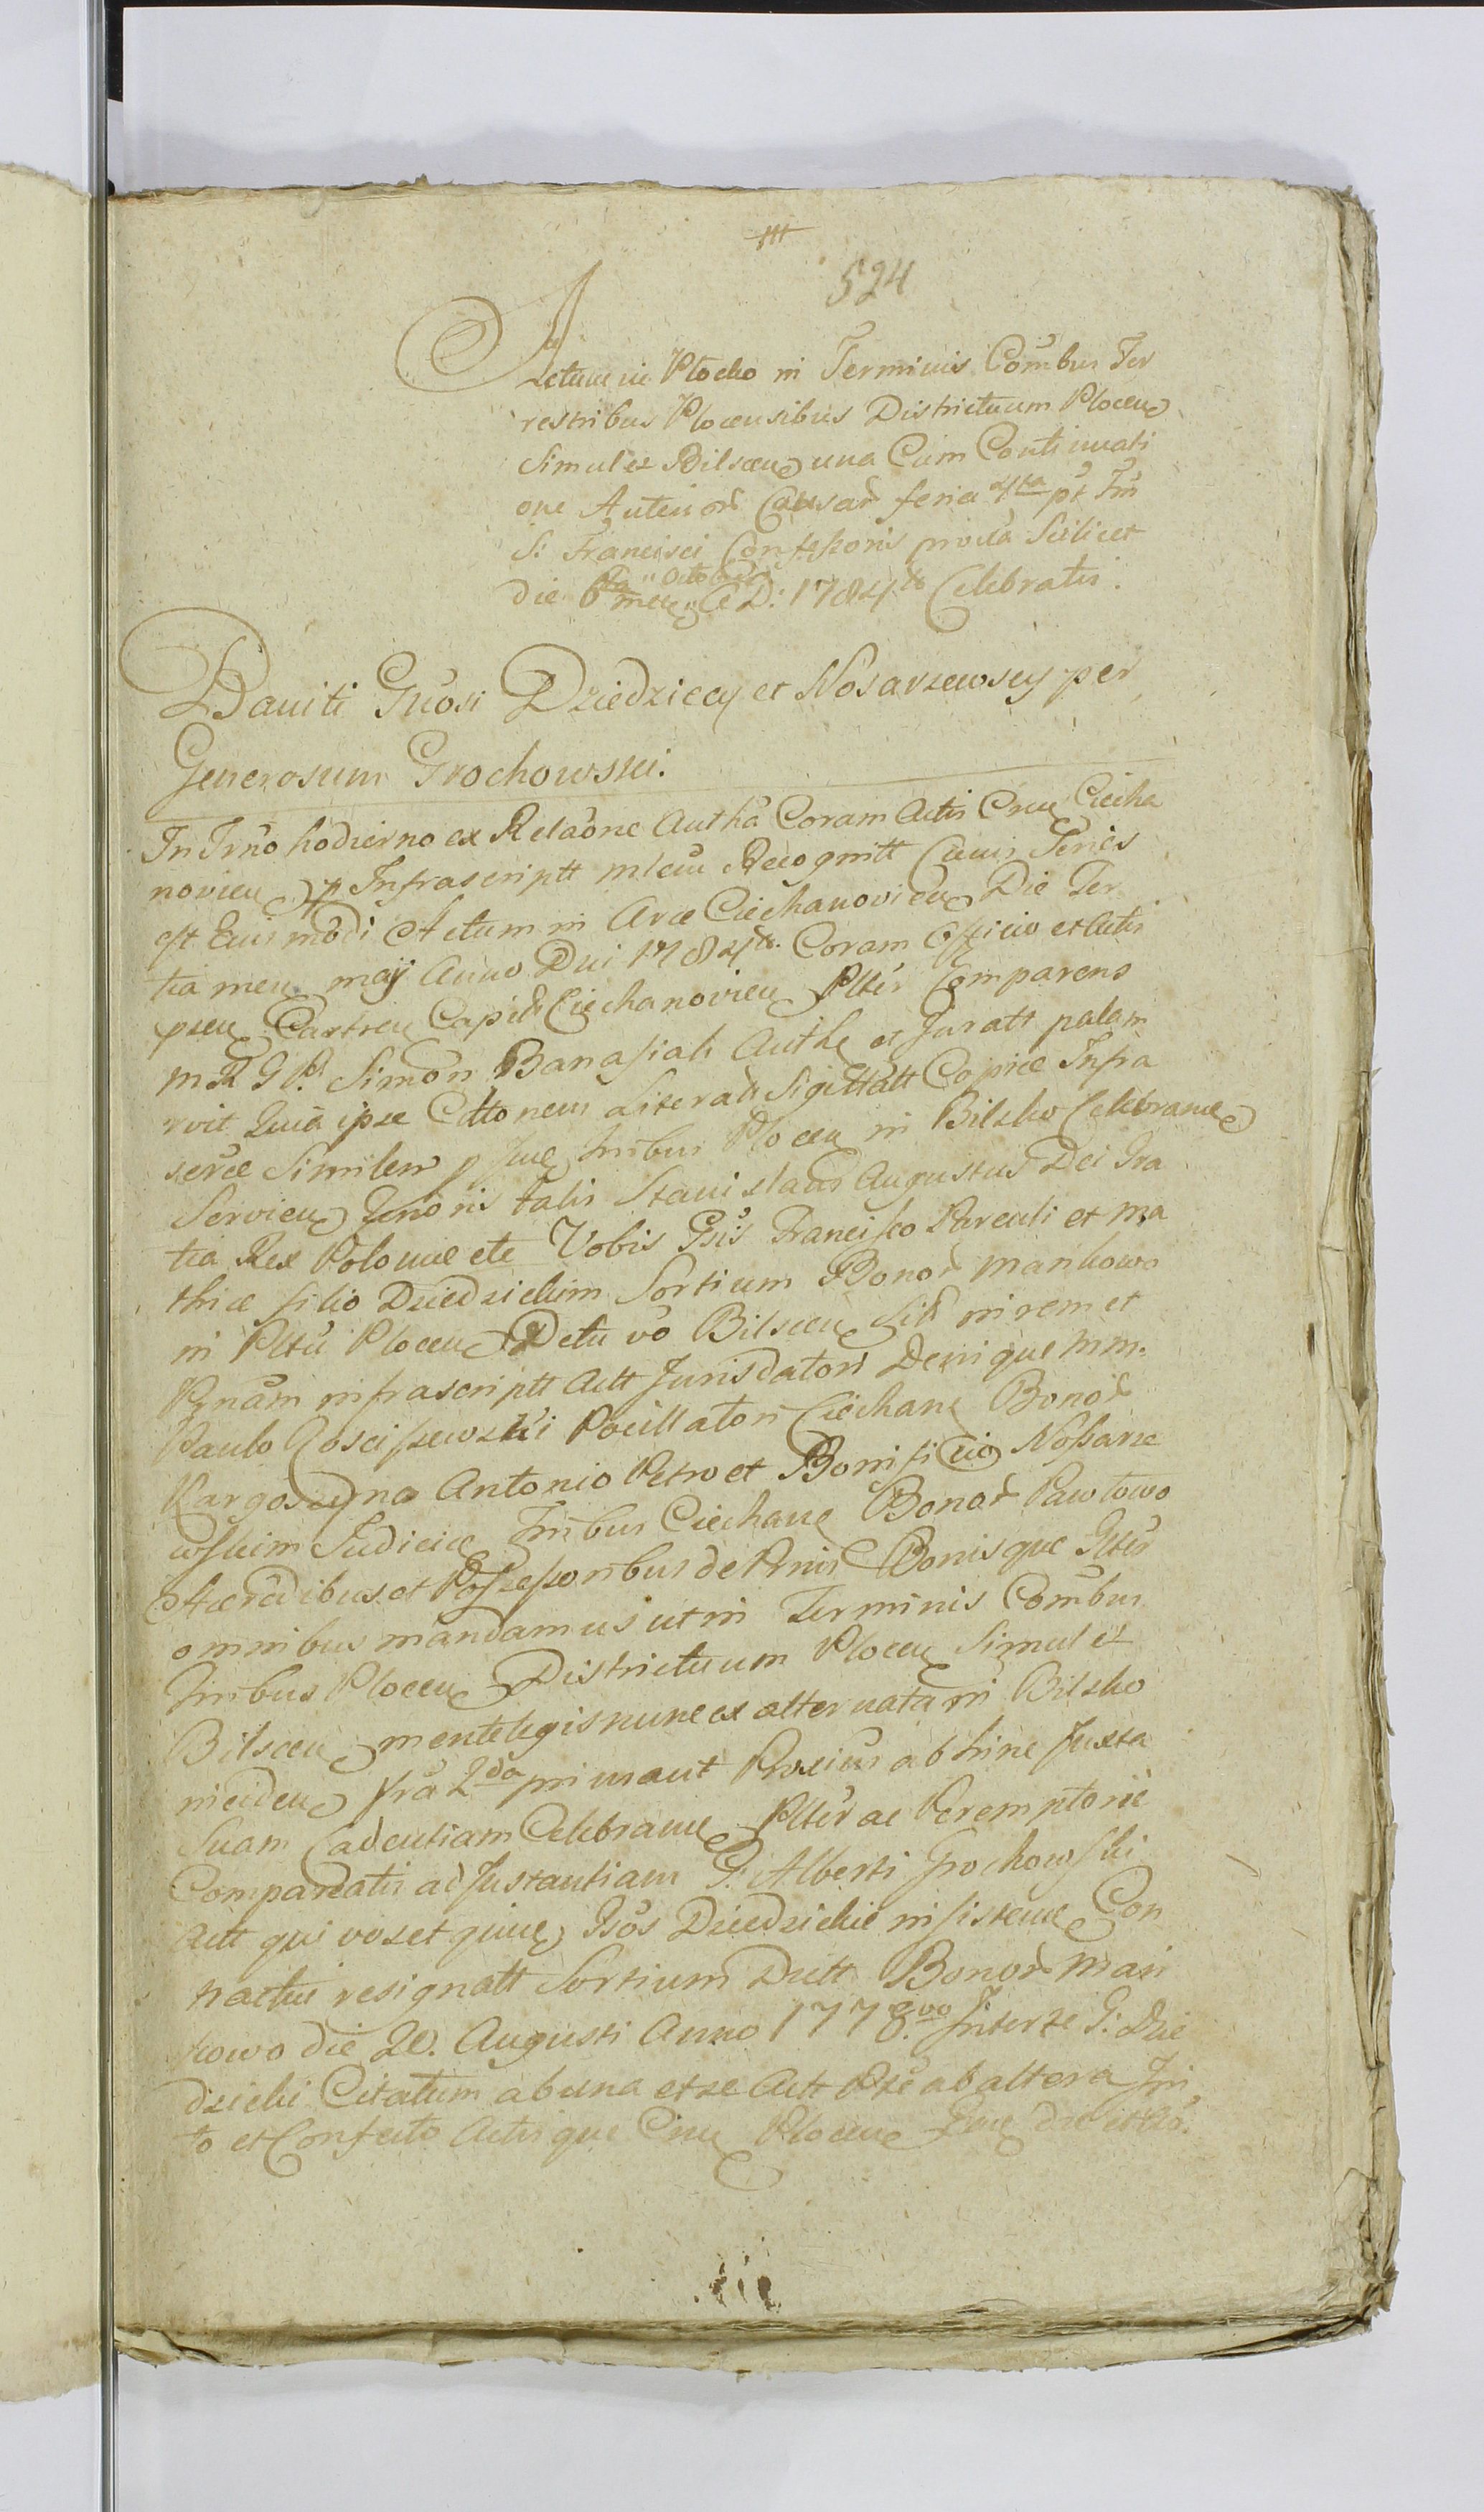 524
Actum in Płocko in Terminis Combus Ter
restribus Plocensibus Districtuum Plocen
Simul et Bilscen una Cum Continuati
one Anterior Causar feria 4ta pt Fm
S: Francisci Confessoris proxa Scilicet
die 6ta mens Octobris A D: 1784to Celebratis.
Baniti Gnosi Dziedziccy et Nosarzewscy per
Generosum Grochowski.
In Trno hodierno ex Relaone Autha Coram Actis Cren Ciecha
novien Infrascriptt mlem Recognitt Cuius Series
est Eiusmodi Actum in Arce Ciechanovien Die Ter
tia mens maij Anno Dni 1784to Coram Officio et Actis
pten Castren Capit Ciechanovien Pltr Comparens
Simon Banasiak Auth et Juratt palam
rvit Quia ipse Cittonem Literat Sigillatt Copiæ Infra
sertæ Similem p Sue Tribus Plocen in Bilsko Celebrann
Servien Tenoris talis Stanislaus Augustus Dei Gra
tia Rex Poloniæ etc Vobis Gsis Francisco Parenti et Ma
thiæ filio Dziedzickim Sortium Bonor Mankowo
in Pltu Plocen Dctu vo Bilscen Sit in rem et
Psnam infrascriptt Actt Jurisdatori Denique mm.
Paulo Gosciszewski Pocillatori Ciechan Bonor
Kargoszyno Antonio Petro et Bonifacio Nossarze
wskim Judicie Tribus Ciechan Bonor Pawłowo
Hæredibus et Possessoribus de Psnis Bonisque Gltr
omnibus mandamus ut in Terminis Combus
Tribus Plocen Districtuum Plocen Simul et
Bilscen mente legis nunc ex alternata in Bilsko
inciden fra 2da primaut Proxius abhinc Juxta
Suam Cadentiam Celebrann Pltr ac Peremptorie
Compareatis ad Instantiam G. Alberti Grochowski
Actt qui vos et quim Gsos Dziedzickie insistenn Con
tractui resignatt Sortium Dictt Bonor Man
kowo die 20. Augusti Anno 1778.vo Inter se G: Dzie
dzicki Citatum ab una et se Actt Pte ab altera Ini
to et Confecto Actisque Cren Plocen